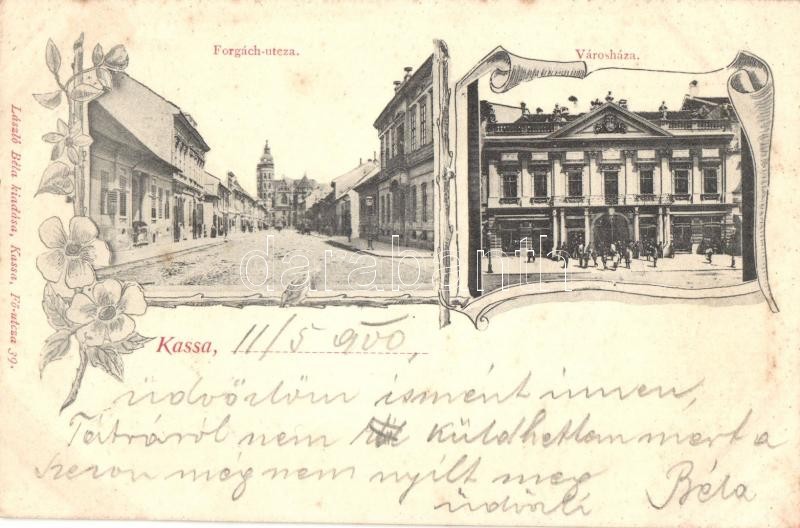 Forgách-utcza.
Városháza.
László Béla kiadása, Kassa, Fő-utcza 39.
darabanth
Kassa, 11/5 900,
üdvözlöm ismént innen,
Tátráról nem küldhettam mert a
szezon még nem nyílt meg
üdvözli Béla